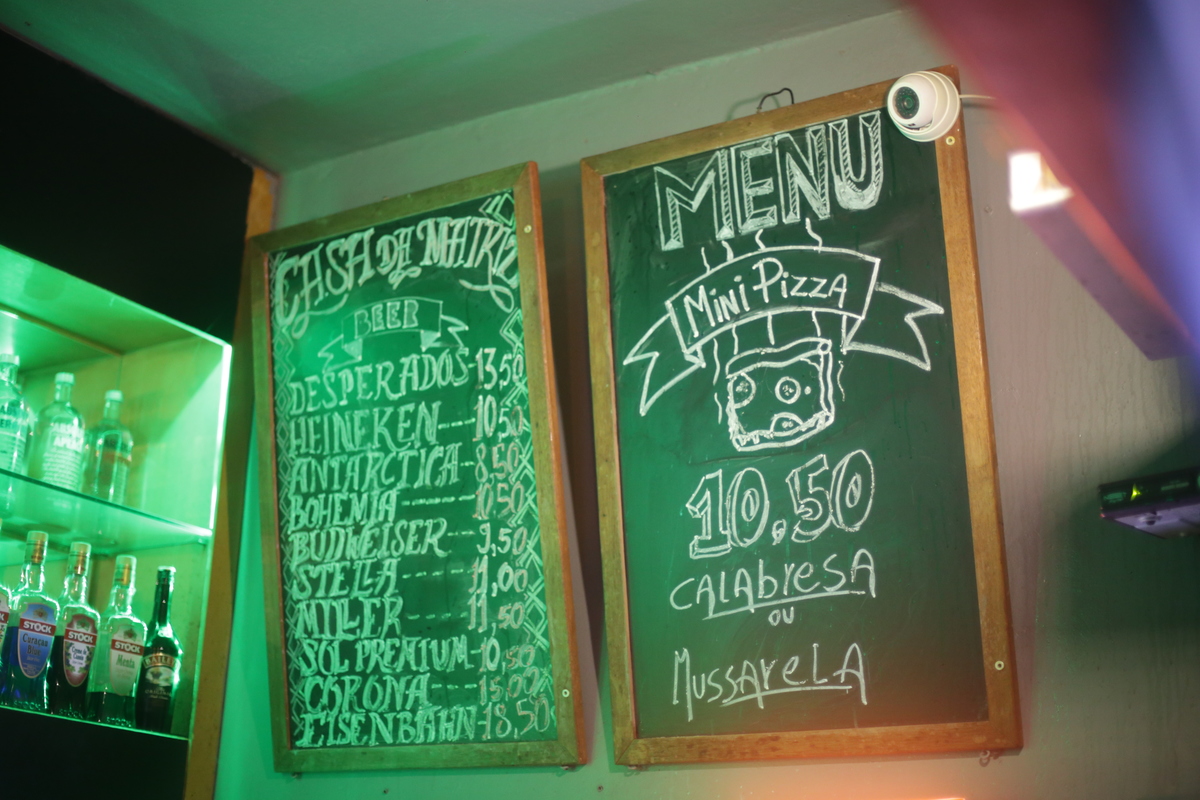 CASA DA MATRIZ
BEER
DESPERADOS-13,50
HEINEKEN---10,50
ANTARCTICA-8,50
BOHEMIA----10,50
BUDWEISER--9,50
STELLA----11,00
MILLER----11,50
SOL PREMIUM-10,50
CORONA---15,00
EISENBAHN-18,50
MENU
Mini Pizza
10,50
CALAbresA
ou
MussAreLA
STOCK
Curaçau
Blue
STOCK
STOCK
Menta